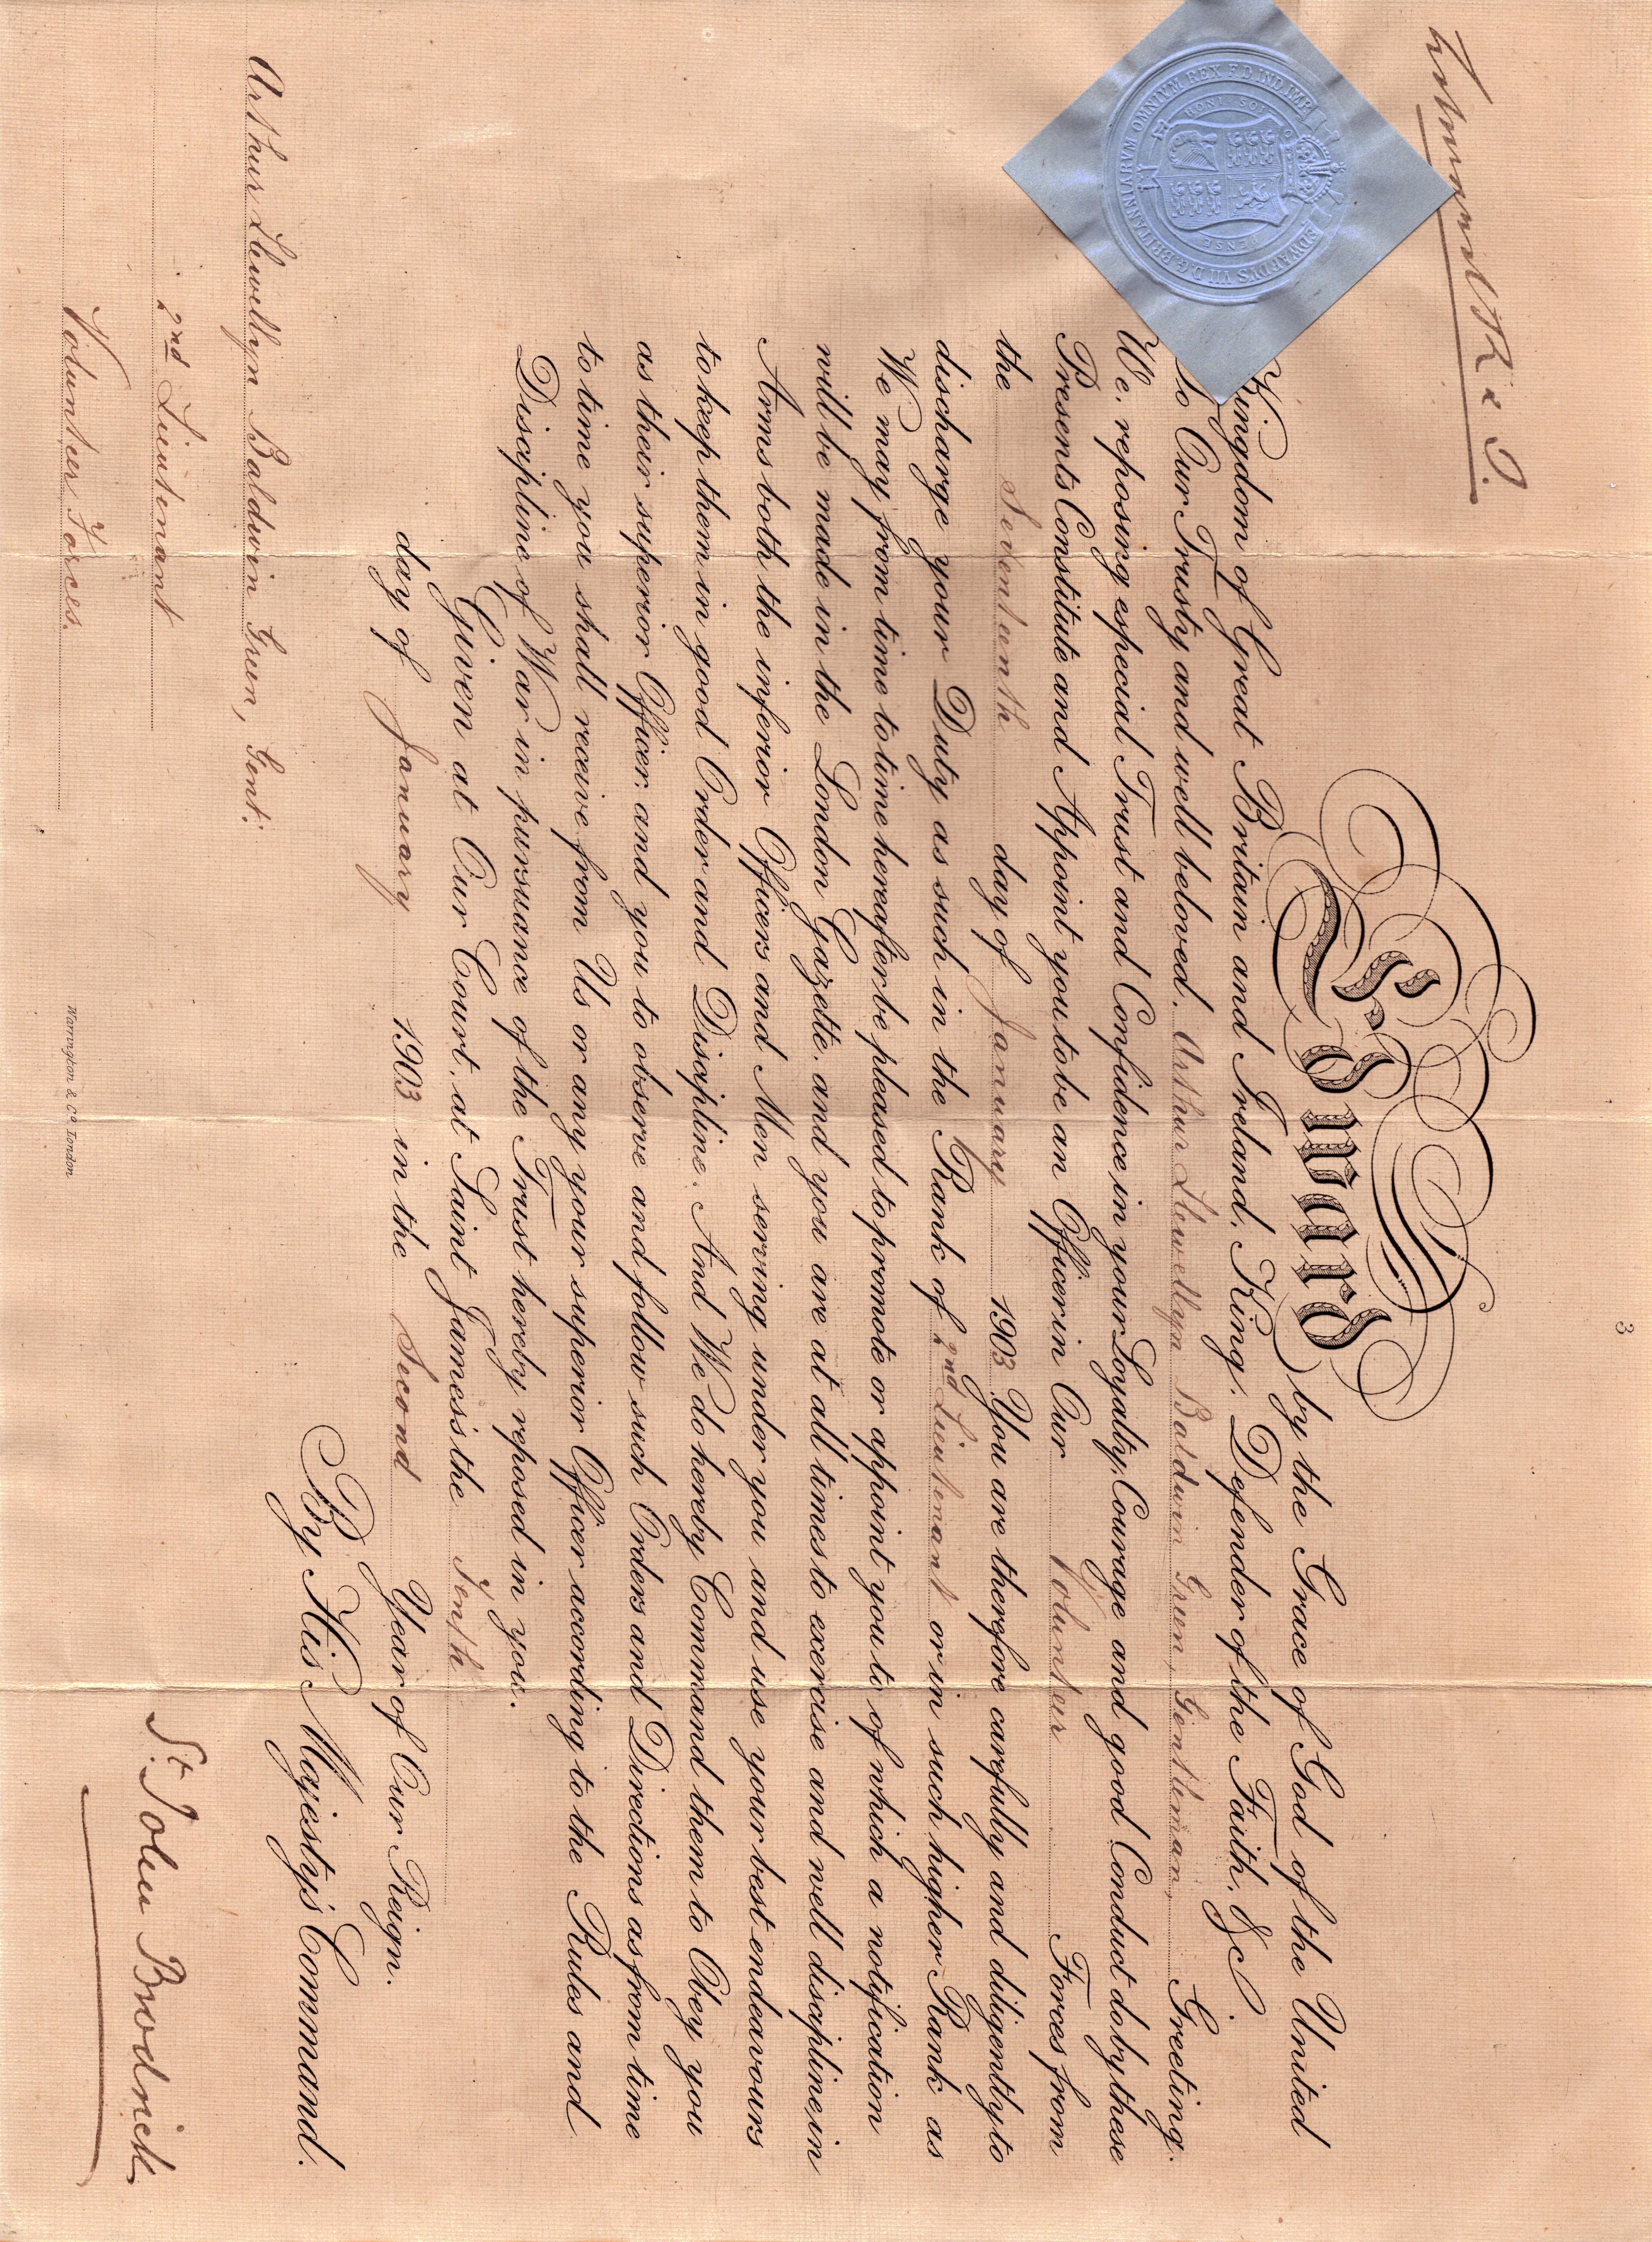 3
Edward R & I.
EDWARDVS VII D.G. BRITANNIARVM OMNIVM REX F.D. IND. IMP.
HONI SOIT PENSE
Edward by the Grace of God of the United
Kingdom of Great Britain and Ireland, King, Defender of the Faith, &c.
To Our Trusty and well beloved, Arthur Llewellyn Baldwin Green, Gentleman, Greeting.
We, reposing especial Trust and Confidence in your Loyalty, Courage and good Conduct do by these
Presents Constitute and Appoint you to be an Officer in Our Volunteer Forces from
the Seventeenth day of January 1903. You are therefore carefully and diligently to
discharge your Duty as such in the Rank of 2nd Lieutenant or in such higher Rank as
We may from time to time hereafter be pleased to promote or appoint you to of which a notification
will be made in the London Gazette, and you are at all times to exercise and well discipline in
Arms both the inferior Officers and Men serving under you and use your best endeavours
to keep them in good Order and Discipline. And We do hereby Command them to Obey you
as their superior Officer: and you to observe and follow such Orders and Directions as from time
to time you shall receive from Us or any your superior Officer according to the Rules and
Discipline of War in pursuance of the Trust hereby reposed in you.
Given at Our Court, at Saint James's the Tenth
day of January 1903 in the Second Year of Our Reign.
By His Majesty's Command.
Arthur Llewellyn Baldwin Green, Gent:
2nd Lieutenant
Volunteer Forces.
St. John Brodrick
Warrington & Co. London